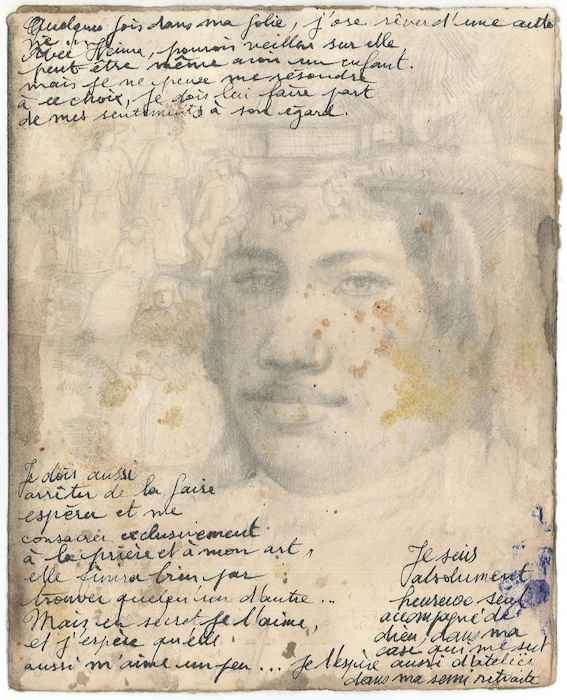 Quelques fois dans ma folie, j'ose rêver d'une autre
vie
Avec Heima, pouvoir veiller sur elle
peut être même avoir un enfant.
mais je ne peux me résoudre
à ce choix, je dois lui faire part
de mes sentiments à son égard.
Je dois aussi
arrêter de la faire
espérer et me
consacrer exclusivement
à la prière et à mon art,
elle finira bien par
trouver quelqu'un d'autre...
Mais en secret je l'aime,
et j'espère qu'elle
aussi m'aime un peu...
Je suis
absolument
heureux seul
accompagné de
dieu, dans ma
case qui me sert
je l'espère aussi d'atelier
dans ma semi retraite